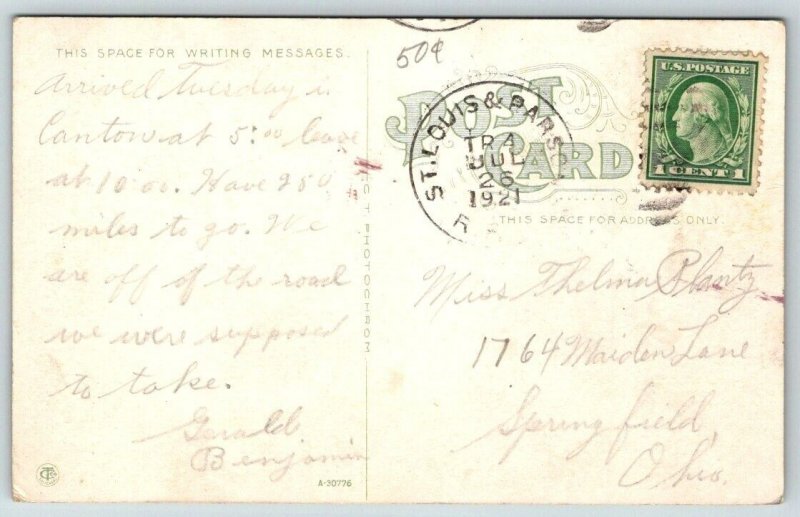 THIS SPACE FOR WRITING MESSAGES.
Arrived Tuesday in
Canton at 5:00 leave
at 10:00. Have 250
miles to go. We
are off of the road
we were supposed
to take.
Gerald
Benjamin
CT
A-30776
PHOTOCHROM
50¢
POST CARD
ST. LOUIS & PARSON
TR 4
JUL
26
1921
R
U.S. POSTAGE
1 CENT 1
THIS SPACE FOR ADDRESS ONLY.
Miss Thelma Plantz
1764 Maiden Lane
Springfield,
Ohio.